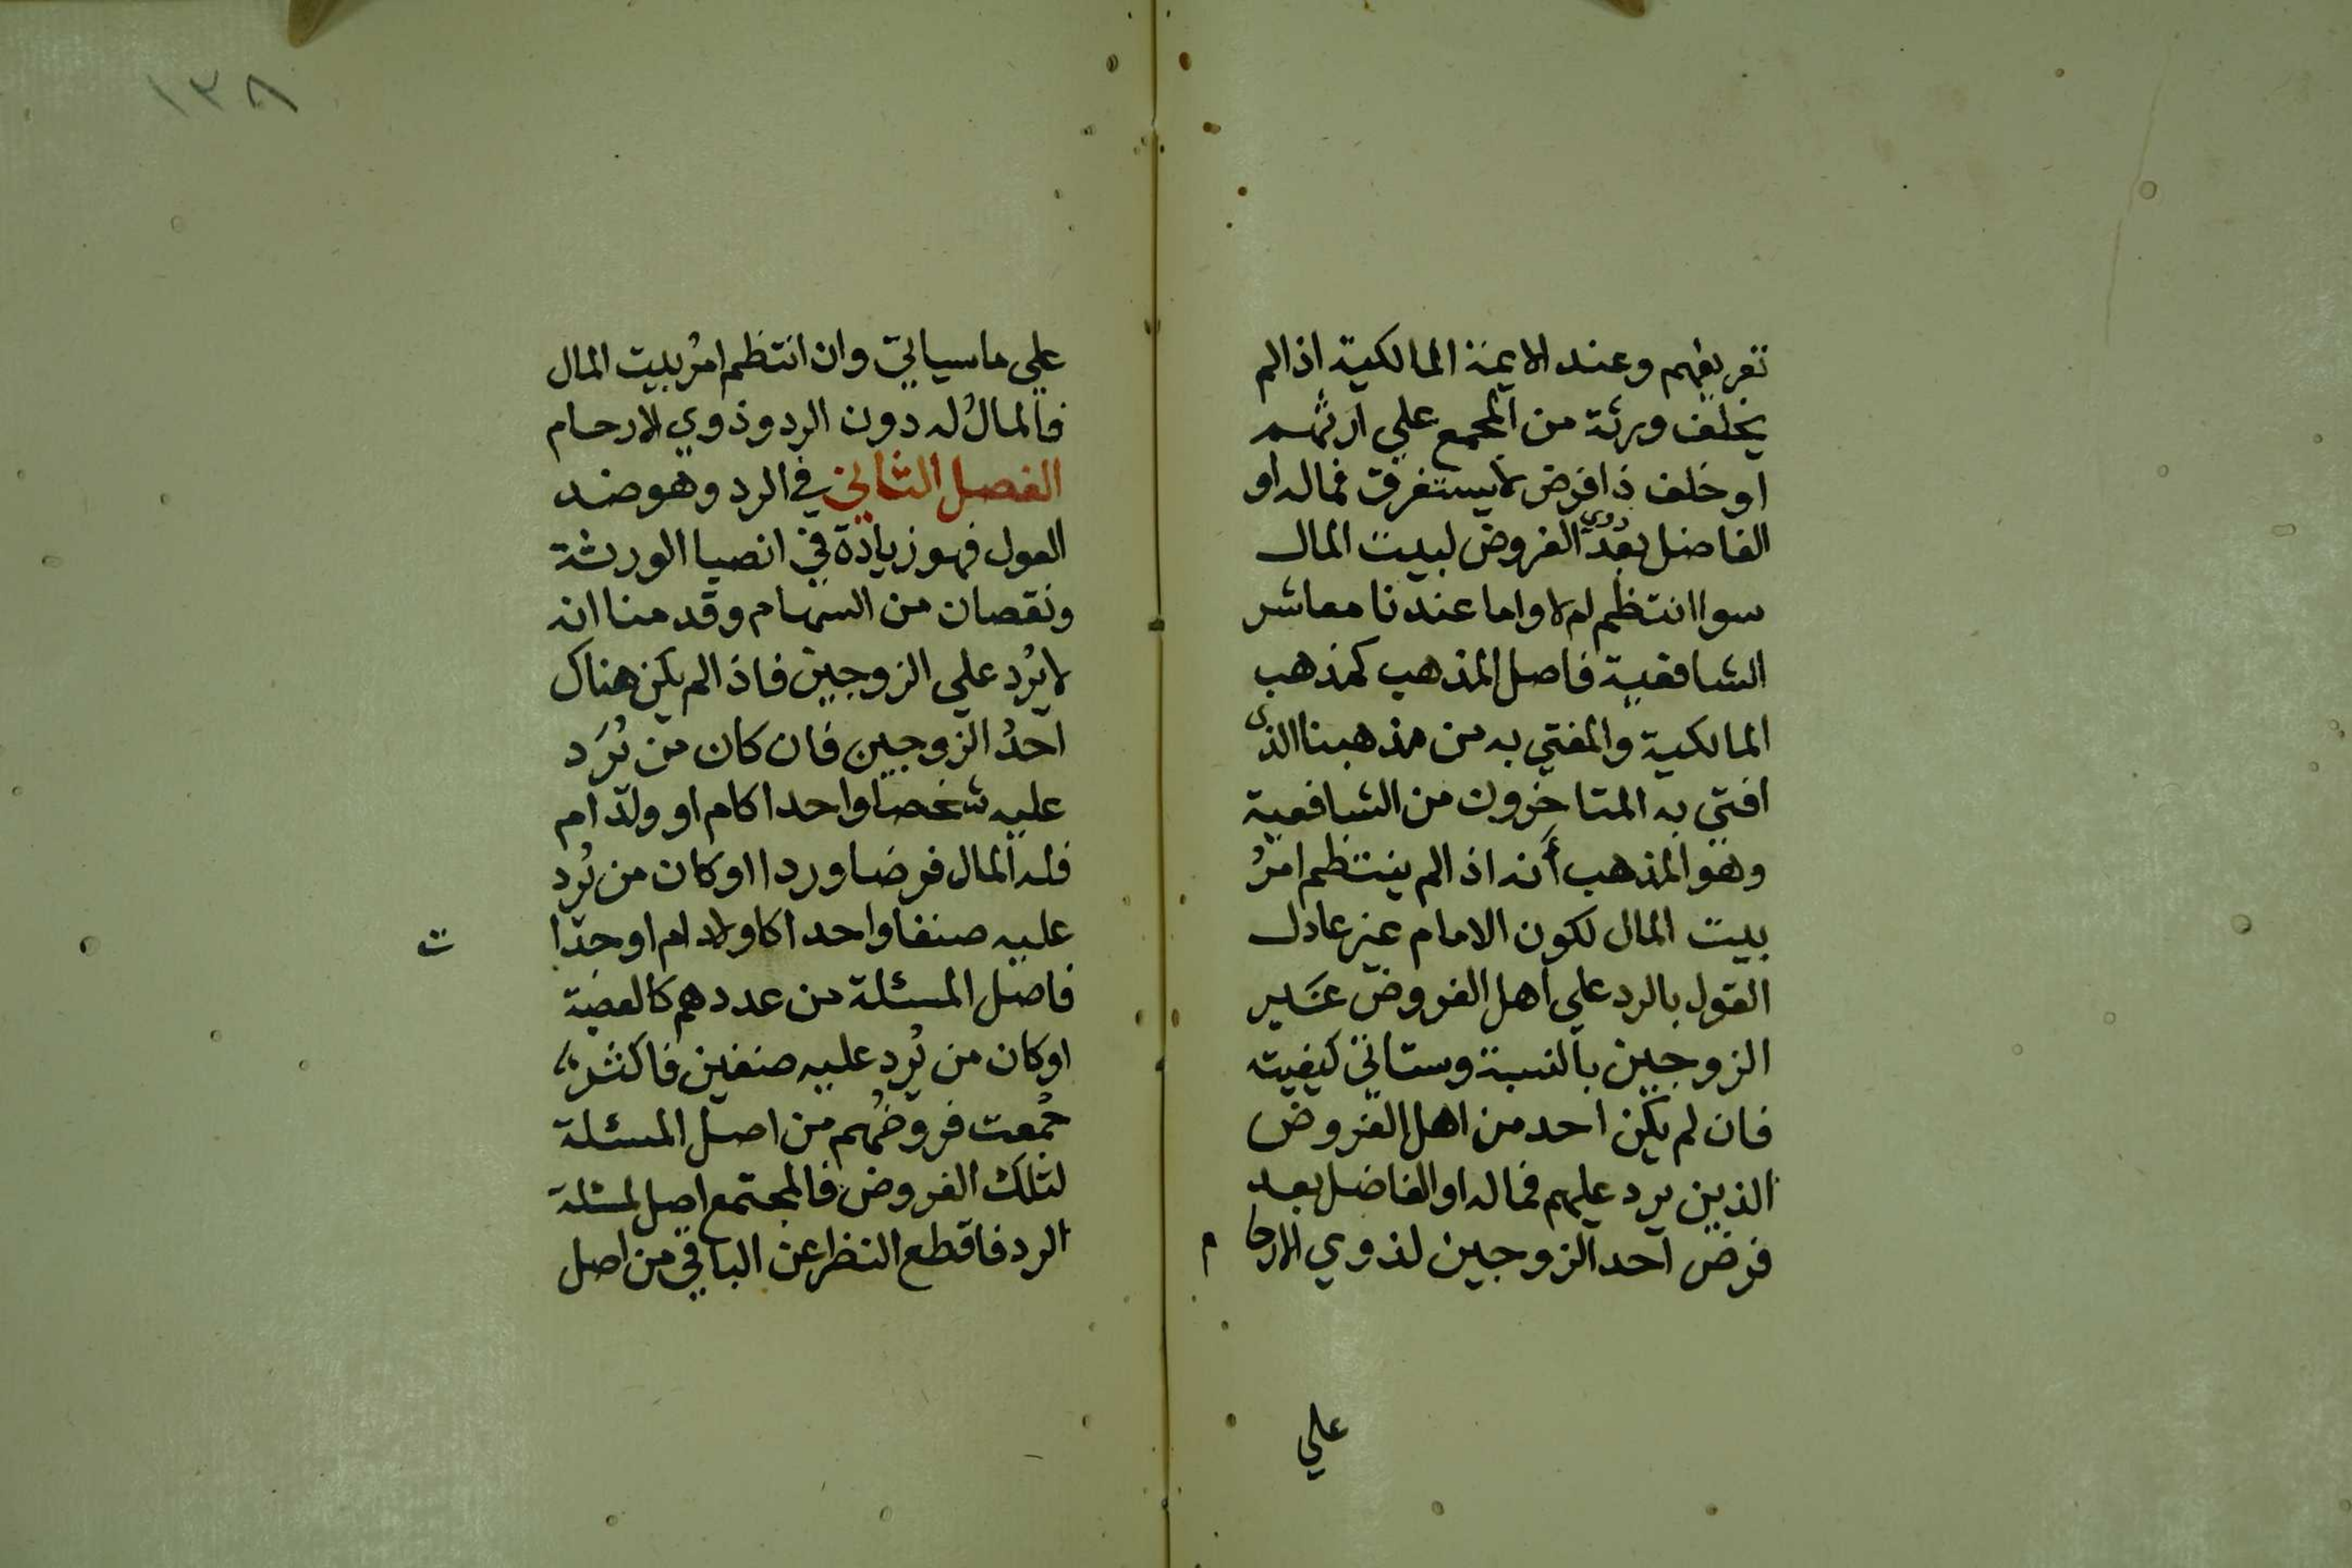 تعريفهم وعند الايمة المالكية اذا لم
يخلف ورثة من المجمع علي ارثهم
او خلف ذا فرض لا يستغرق فماله او
الفاضل بعد ذوي الفروض لبيت المال
سوا انتظم ام لا واما عندنا معاشر
الشافعية فاصل المذهب كمذهب
المالكية والمفتي به من مذهبنا الذي
افتي به المتاخرون من الشافعية
وهو المذهب أنه اذا لم ينتظم امرُ
بيت المال لكون الامام غير عادل
القول بالرد علي اهل الفروض غير
الزوجين بالنسبة وستاتي كيفيته
فان لم يكن احد من اهل الفروض
الذين يرد عليهم فماله او الفاضل بعد
فرض احد الزوجين لذوي الارحام
علي
١٣٨
علي ما سياتي وان انتظم امرُ بيت المال
فالمالُ له دون الرد وذوي الارحام
الفصل الثاني في الرد وهو ضد
العول فهو زيادة في انصبا الورثة
ونقصان من السهام وقدمنا انه
لا يُرد علي الزوجين فاذا لم يكن هناك
احدُ الزوجين فان كان من يُرَد
عليه شخصا واحدا كام او ولد ام
فله المال فرضا وردا او كان من يُرد
عليه صنفا واحدا كاولاد ام او جدات
فاصل المسئلة من عددهم كالعصبة
او كان من يُرد عليه صنفين فاكثر
جُمعت فروضُهم من اصل المسئلة
لتلك الفروض فالمجتمع اصل لمسئلة
الرد فاقطع النظر عن الباقي من اصل